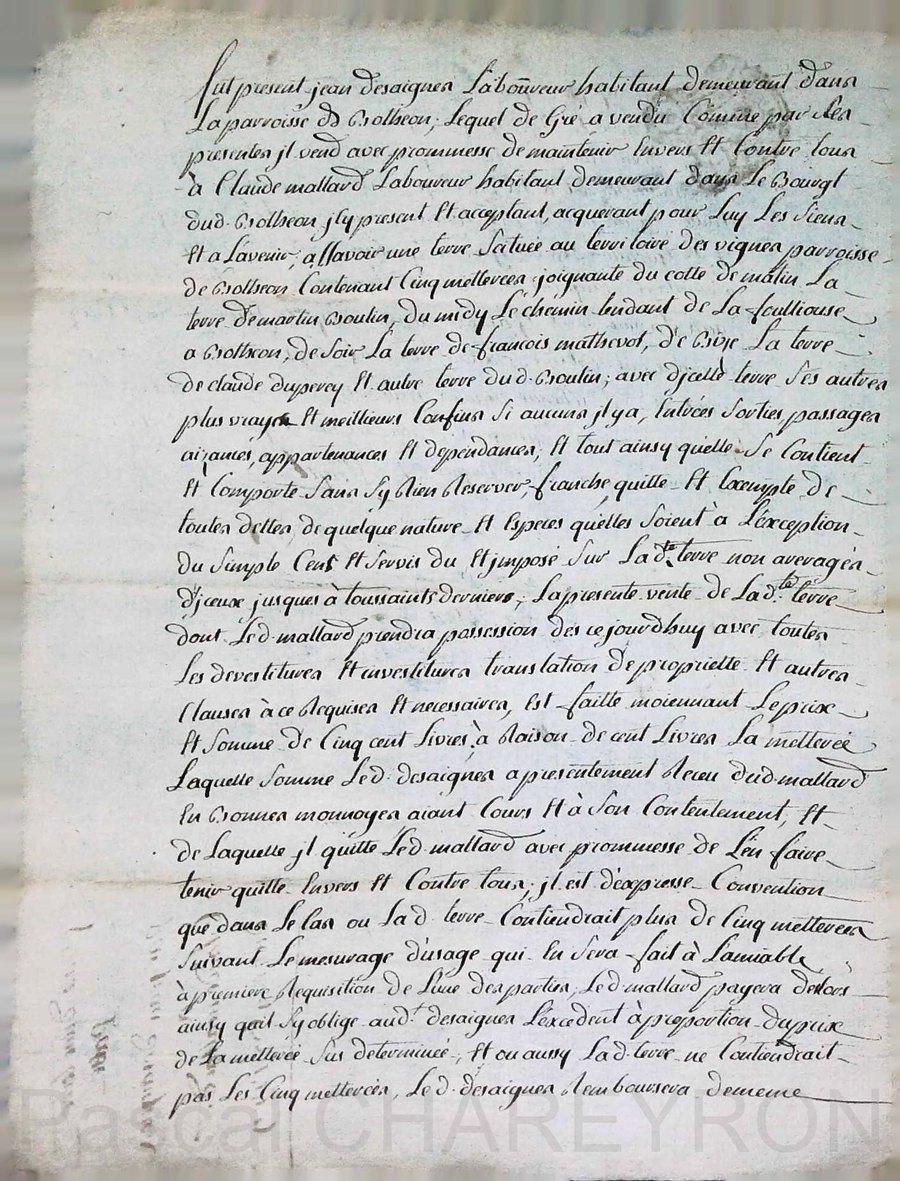 fut present jean desaignes Laboureur habitant demeurant dans
La parroisse de Botheon, Lequel de Gré a vendu Comme par Les
presentes jl vend avec prommesse de maintenir Envers Et Contre tous
à Claude mallard Laboureur habitant demeurant dans Le Bourgt
dud. Botheon jcy present Et acceptant, acquerant pour Luy Les Siens
Et a L'avenir, assavoir une terre Scituée au territoire des vignes parroisse
de Botheon Contenant Cinq metterées joignante du cotté de matin La
terre de martin Boulin, du midy Le chemin tendant de La foulliouse
a Botheon, de Soir La terre de françois mathevot, de Bize La terre
de claude duperey Et autre terre dud. Boulin; avec d'jcelle terre Ses autres
plus vrayes Et meillieurs Confins Si aucuns jl y a, Entrées Sorties, passages
aizances, appartenances Et dependances, Et tout ainsy qu'elle Se Contient
Et Comporte Sans Sy Rien Reserver, franche, quitte Et Exempte de
toutes dettes de quelque nature Et Especes qu'elles Soient à L'exception
du Simple Cens Et Servis du Et jmposé Sur Lad.te terre non averagés
d'jceux jusques à toussaints derniers; La presente vente de Lad.te terre
dont Led. mallard prendra possession des ce jourd'huy avec toutes
Les devestitures Et investitures translation de proprietté Et autres
Clauses à ce Requises Et necessaires, Est faitte moiennant Le prix
Et Somme de Cinq cent Livres, à Raison de cent Livres La metterée
Laquelle Somme Led. desaignes a presentement Receu dud. mallard
En Bonnes monnoyes aiant Cours Et à Son Contentement, Et
de Laquelle jl quitte Led. mallard avec prommesse de L'en faire
tenir quitte Envers Et Contre tous; jl est d'expresse Convention
que dans Le Cas ou Lad. terre Contiendrait plus de Cinq metterées
Suivant Le mesurage d'usage qui En Sera fait à L'amiable
à premiere Requisition de L'une des parties, Led. mallard payera deslors
ainsy qu'il Sy oblige aud.t desaignes L'excedent à proportion du prix
de La metterée Sus determinée, Et ou aussy Lad. terre ne Contiendrait
pas Les Cinq metterées, Led. desaignes Remboursera demême
Pascal CHAREYRON